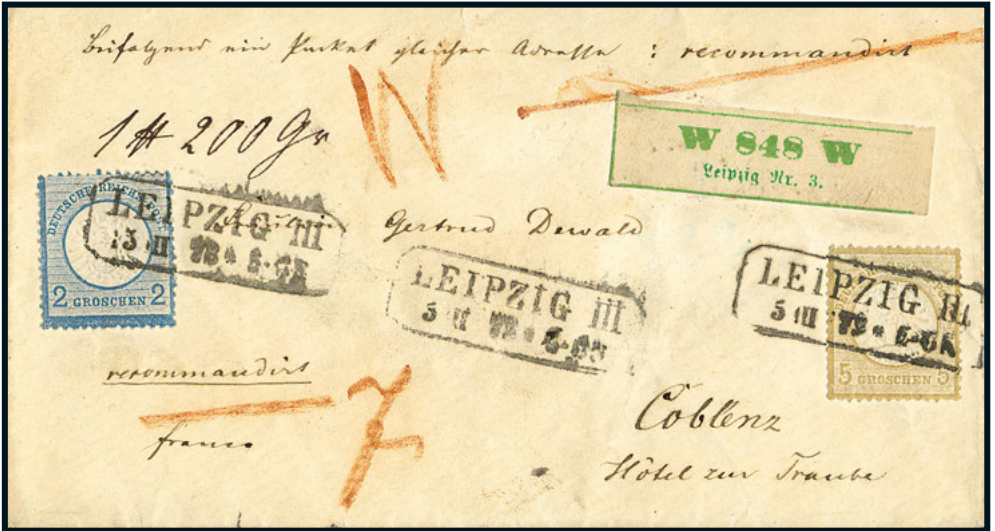 Beifolgend ein Packet gleicher Adresse : recommandirt
W
1 ℔ 200 Gr
W 848 W
Leipzig Nr. 3.
DEUTSCHE REICHS-POST
2 GROSCHEN 2
LEIPZIG III
Fräulein Gertrud Dewald
LEIPZIG III
LEIPZIG III
5 GROSCHEN 5
recommandirt
7
franco
Coblenz
Hôtel zur Traube